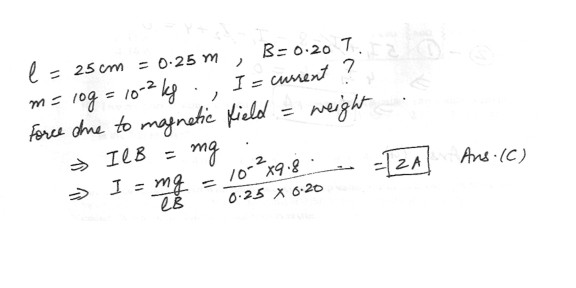 l = 25 cm = 0.25 m , B = 0.20 T.
m = 10g = 10⁻² kg . , I = current ?
Force due to magnetic field = weight .
⇒ IlB = mg .
⇒ I = mg/lB = 10⁻² x 9.8 / 0.25 x 0.20 = 2 A Ans. (C)